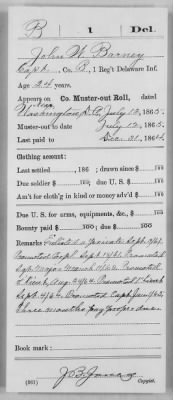 B | 1 | Del.
John W. Barney
Capt., Co. B, 1 Reg't Delaware Inf.
Age 24 years.
Appears on Co. Muster-out Roll, dated
near Washington D.C., July 12, 1865.
Muster-out to date July 12, 1865.
Last paid to Dec. 31, 1864
Clothing account:
Last settled , 186 ; drawn since $ 100
Due soldier $ 100; due U. S. $ 100
Am't for cloth'g in kind or money adv'd $ 100
Due U. S. for arms, equipments, &c., $ 100
Bounty paid $ 100; due $ 100
Remarks: Enlisted as private Sept. /61.
Promoted Corpl. Sept. /61. Promoted
Sgt. Major March /62. Promoted
2" Lieut. Aug. /62. Promoted 1" Lieut.
Sept. 4/64. Promoted Capt. Jan /65.
Three months pay proper due.
Book mark:
(361)
Copyist.